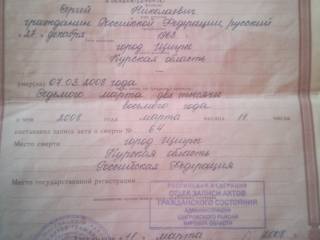 Сергей Николаевич
гражданин Российской Федерации, русский
"27" декабря 1963
город Щигры
Курская область
умер(ла) 07.03.2008 года
Седьмого марта две тысячи
восьмого года
о чем 2008 года марта месяца 11 числа
составлена запись акта о смерти № 64
Место смерти город Щигры
Курская область
Российская Федерация
Место государственной регистрации
РОССИЙСКАЯ ФЕДЕРАЦИЯ
ОТДЕЛ ЗАПИСИ АКТОВ
ГРАЖДАНСКОГО СОСТОЯНИЯ
АДМИНИСТРАЦИИ
ЩИГРОВСКОГО РАЙОНА
КУРСКОЙ ОБЛАСТИ
"11" марта 2008 г.